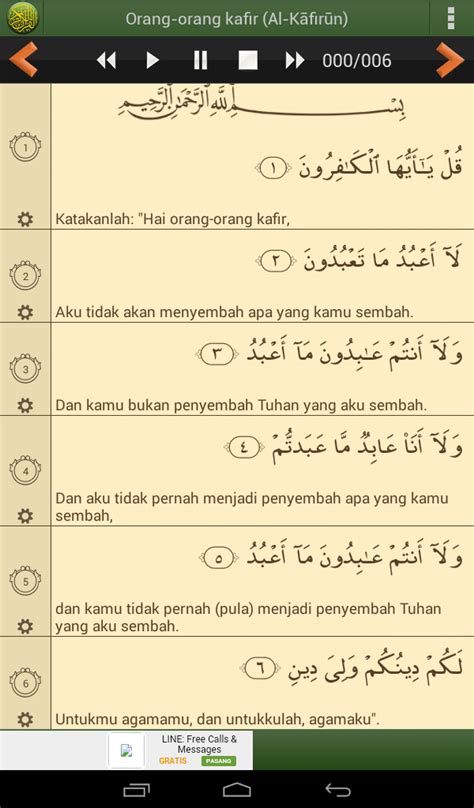 Orang-orang kafir (Al-Kāfirūn)
000/006
بِسْمِ ٱللَّهِ ٱلرَّحْمَٰنِ ٱلرَّحِيمِ
1
قُلْ يَٰٓأَيُّهَا ٱلْكَٰفِرُونَ ١
Katakanlah: "Hai orang-orang kafir,
2
لَآ أَعْبُدُ مَا تَعْبُدُونَ ٢
Aku tidak akan menyembah apa yang kamu sembah.
3
وَلَآ أَنتُمْ عَٰبِدُونَ مَآ أَعْبُدُ ٣
Dan kamu bukan penyembah Tuhan yang aku sembah.
4
وَلَآ أَنَا۠ عَابِدٌ مَّا عَبَدتُّمْ ٤
Dan aku tidak pernah menjadi penyembah apa yang kamu
sembah,
5
وَلَآ أَنتُمْ عَٰبِدُونَ مَآ أَعْبُدُ ٥
dan kamu tidak pernah (pula) menjadi penyembah Tuhan
yang aku sembah.
6
لَكُمْ دِينُكُمْ وَلِىَ دِينِ ٦
Untukmu agamamu, dan untukkulah, agamaku".
LINE: Free Calls &
Messages
GRATIS PASANG